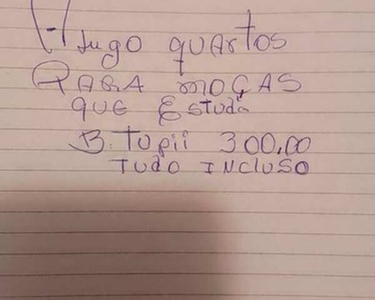 Alugo quartos
PARA MOÇAS
QUE Estuda
B. Tupii 300,00
TUDO INCLUSO